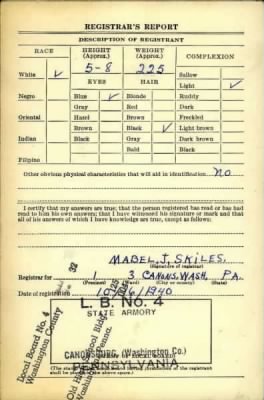 REGISTRAR'S REPORT
DESCRIPTION OF REGISTRANT
RACE
HEIGHT (Approx.)
WEIGHT (Approx.)
COMPLEXION
5-8
225
White ✓
EYES
HAIR
Sallow
Light ✓
Negro
Blue ✓
Blonde
Ruddy
Gray
Red
Dark
Oriental
Hazel
Brown
Freckled
Brown
Black ✓
Light brown
Indian
Black
Gray
Dark brown
Bald
Black
Filipino
Other obvious physical characteristics that will aid in identification
no
I certify that my answers are true; that the person registered has read or has had read to him his own answers; that I have witnessed his signature or mark and that all of his answers of which I have knowledge are true, except as follows:
MABEL, J, SKILES.
(Signature of registrar)
Registrar for 1 3 CANONS, WASH, PA.
(Precinct) (Ward) (City or county) (State)
Date of registration 10/16/1940
32
Local Board No. 4
Washington County
L. B. No. 4
STATE ARMORY
CANONSBURG (Washington Co.)
PENNSYLVANIA
(The stamp of the Local Board having jurisdiction of the registrant shall be placed in the above space.)